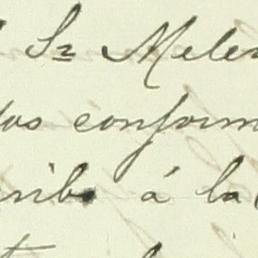 Sr Mele
os conform
ribo á la